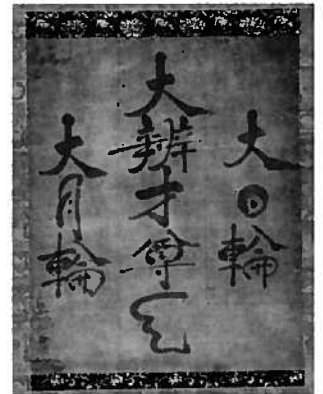 大日輪
大辨才尊天
大月輪